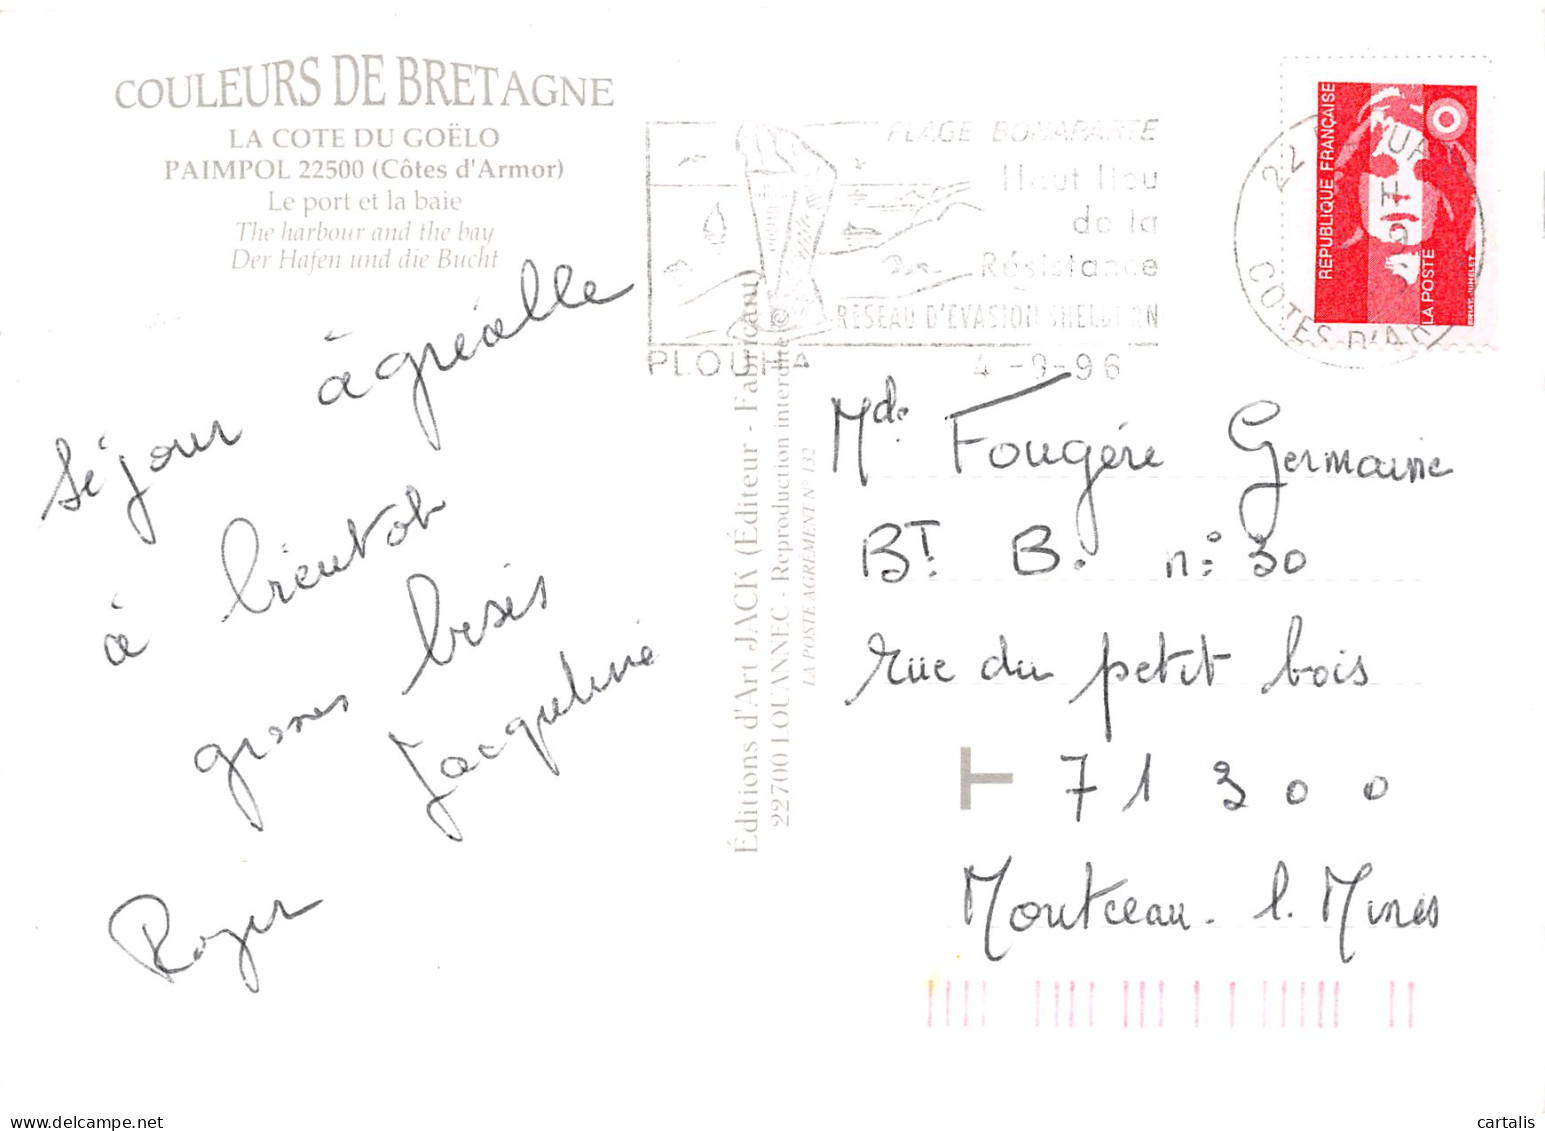 COULEURS DE BRETAGNE
LA COTE DU GOËLO
PAIMPOL 22500 (Côtes d'Armor)
Le port et la baie
The harbour and the bay
Der Hafen und die Bucht
séjour agréable
à bientôt
grosses bises
Jacqueline
Roger
PLAGE BONAPARTE
Haut lieu
de la
Résistance
RESEAU D'EVASION SHELBURN
PLOUHA 4-9-96
Éditions d'Art JACK (Éditeur - Fabricant)
22700 LOUANNEC - Reproduction interdite ©
LA POSTE AGREMENT N° 132
22 PLOUHA
COTES D'AR
RÉPUBLIQUE FRANÇAISE
LA POSTE
Mde Fougère Germaine
BT. B. n° 30
rue du petit bois
T 71 300
Montceau. l. Mines
cartalis